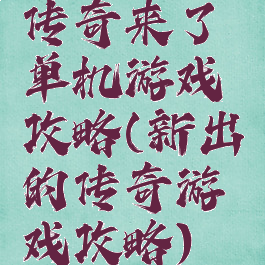 传奇来了
单机游戏
攻略(新出
的传奇游
戏攻略)